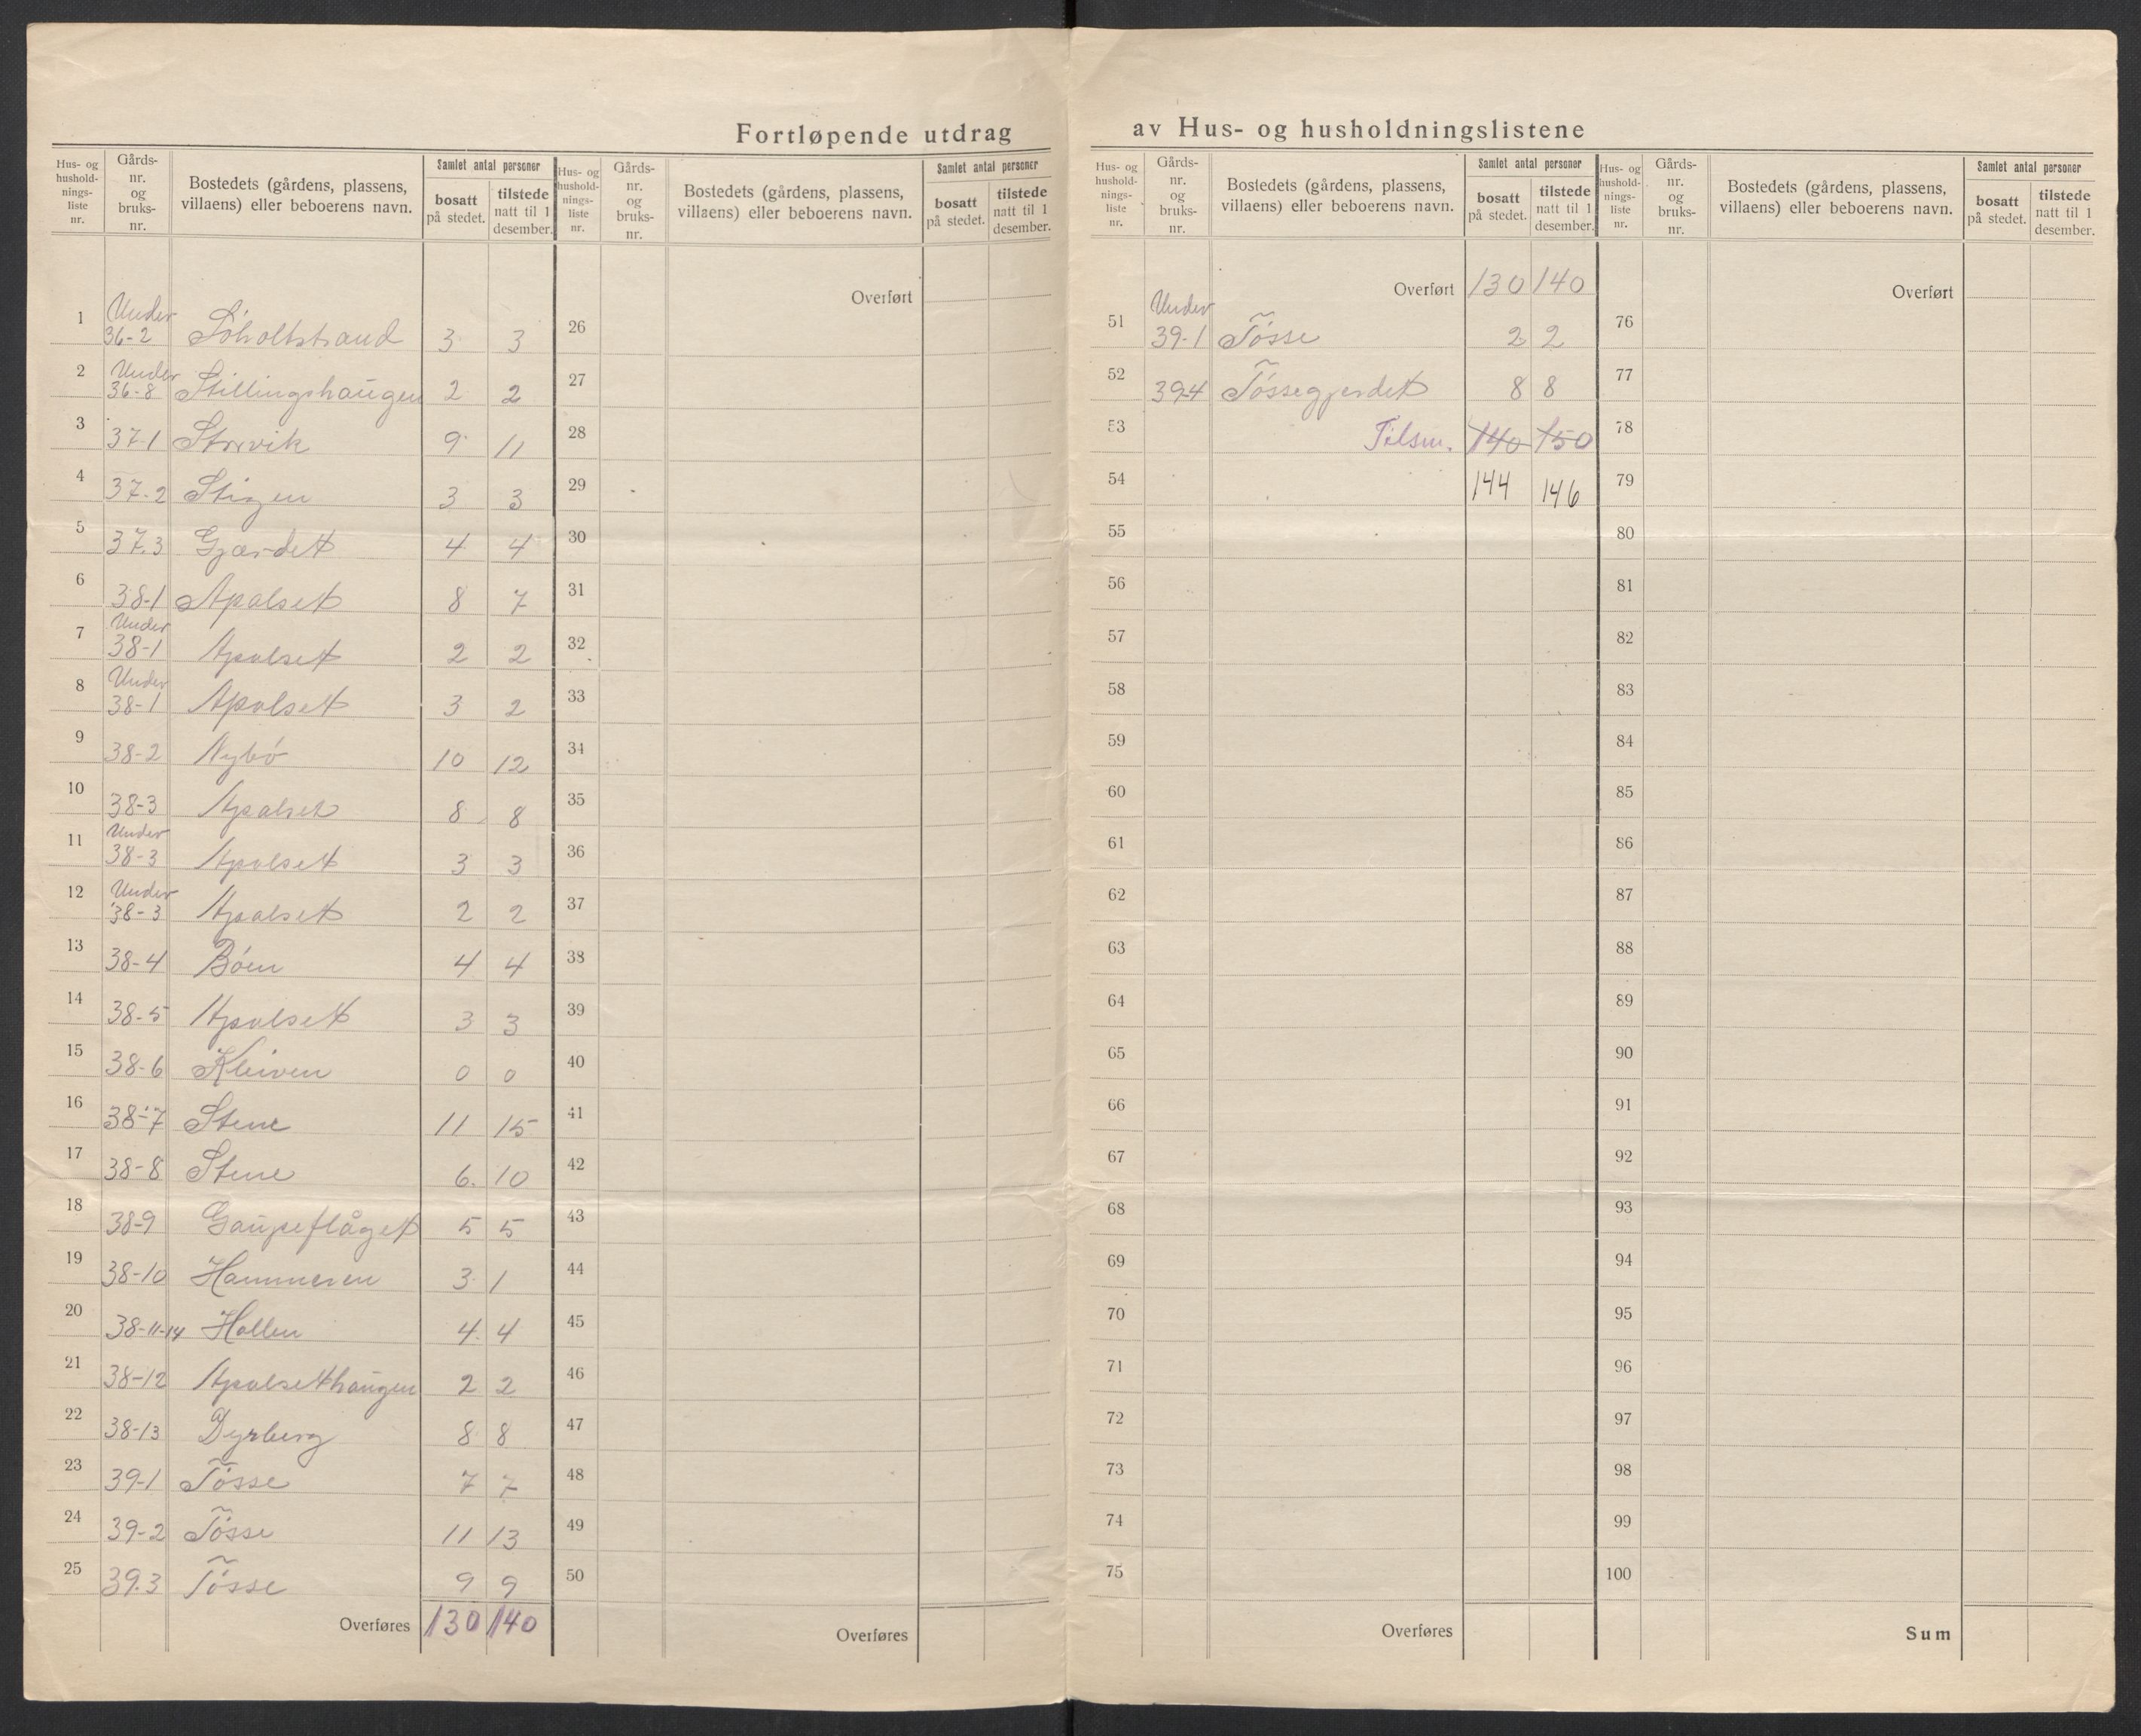 Fortløpende utdrag av Hus- og husholdningslistene
Hus- og hushold-nings-liste nr. Gårds-nr. og bruks-nr. Bostedets (gårdens, plassens, villaens) eller beboerens navn. Samlet antal personer bosatt på stedet. tilstede natt til 1 desember.
Hus- og hushold-nings-liste nr. Gårds-nr. og bruks-nr. Bostedets (gårdens, plassens, villaens) eller beboerens navn. Samlet antal personer bosatt på stedet. tilstede natt til 1 desember.
1 Under 36-2 Söholtstrand 3 3
2 Under 36-8 Stillingshaugen 2 2
3 37-1 9 11
4 37-2 Stigen 3 3
5 37.3 Gjærdet 4 4
6 38-1 Apalset 8 7
7 Under 38-1 Apalset 2 2
8 Under 38-1 Apalset 3 2
9 38-2 Nybö 10 12
10 38-3 Apalset 8 8
11 Under 38-3 Apalset 3 3
12 Under 38-3 Apalset 2 2
13 38-4 Böen 4 4
14 38-5 Apalset 3 3
15 38-6 Kleiven 0 0
16 38-7 Stene 11 15
17 38-8 Stene 6 10
18 38-9 Gaupeflåget 5 5
19 38-10 Hammeren 3 1
20 38-11-14 Hollen 4 4
21 38-12 Apalsethaugen 2 2
22 38-13 Dyrberg 8 8
23 39-1 Tösse 7 7
24 39-2 Tösse 11 13
25 39.3 Tösse 9 9
Overføres 130 140
Overført
26
27
28
29
30
31
32
33
34
35
36
37
38
39
40
41
42
43
44
45
46
47
48
49
50
Overføres
Hus- og hushold-nings-liste nr. Gårds-nr. og bruks-nr. Bostedets (gårdens, plassens, villaens) eller beboerens navn. Samlet antal personer bosatt på stedet. tilstede natt til 1 desember.
Hus- og hushold-nings-liste nr. Gårds-nr. og bruks-nr. Bostedets (gårdens, plassens, villaens) eller beboerens navn. Samlet antal personer bosatt på stedet. tilstede natt til 1 desember.
Overført 130 140
51 Under 39-1 Tösse 2 2
52 39-4 Tössegjerdet 8 8
53 Tilsm. 140 150
54 144 146
55
56
57
58
59
60
61
62
63
64
65
66
67
68
69
70
71
72
73
74
75
Overføres
Overført
76
77
78
79
80
81
82
83
84
85
86
87
88
89
90
91
92
93
94
95
96
97
98
99
100
Sum